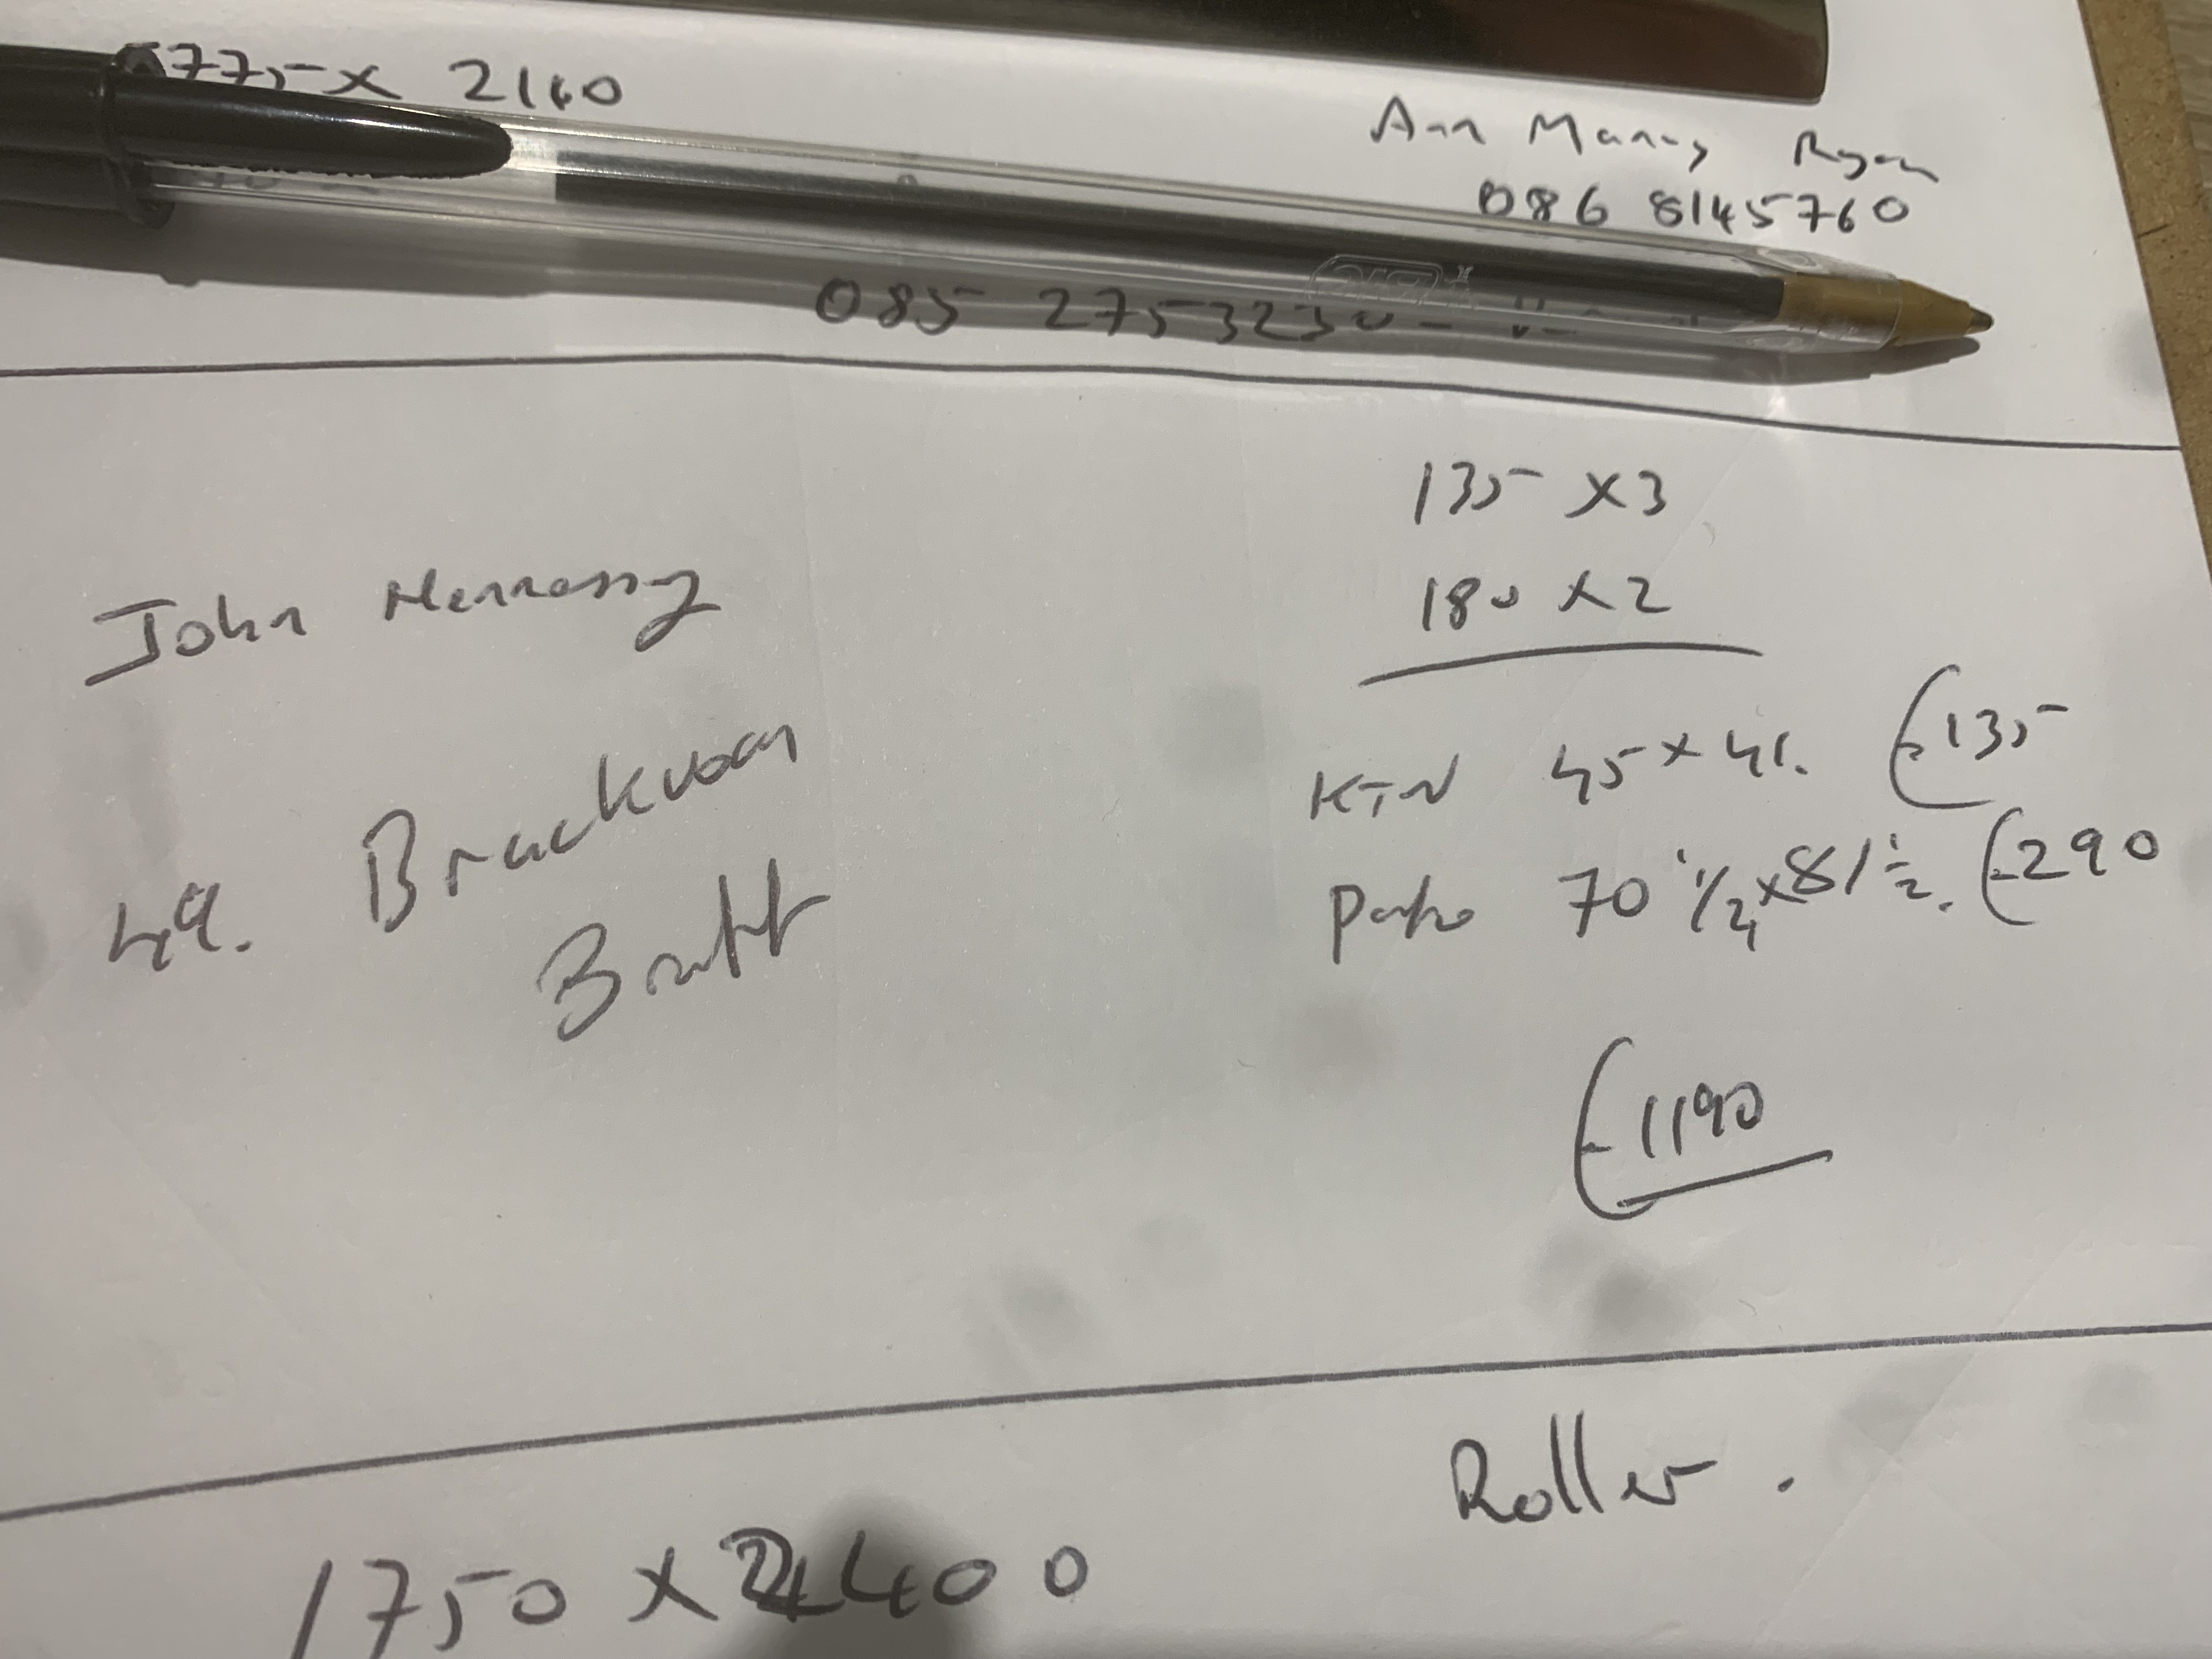 775 x 2140
Ann Marry Ryan
086 8145760
BIC
085 2753230 -
135 x 3
180 x 2
John Hennessy
KTN 45 x 41. €135
49. Brackvoan
Patio 70 1/4 x 81 ½. €290
Brutt
€1190
Roller.
1750 x 2400